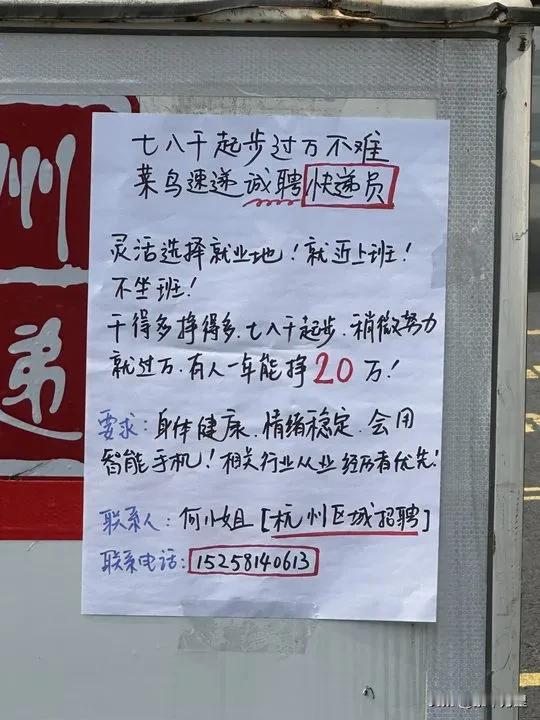 州
递
七八千起步过万不难
菜鸟速递诚聘快递员
灵活选择就业地！就近上班！
不坐班！
干得多挣得多.七八千起步.稍微努力
就过万.有人一年能挣20万！
要求：身体健康.情绪稳定.会用
智能手机！相关行业从业经历者优先！
联系人：何小姐[杭州区域招聘]
联系电话：15258140613